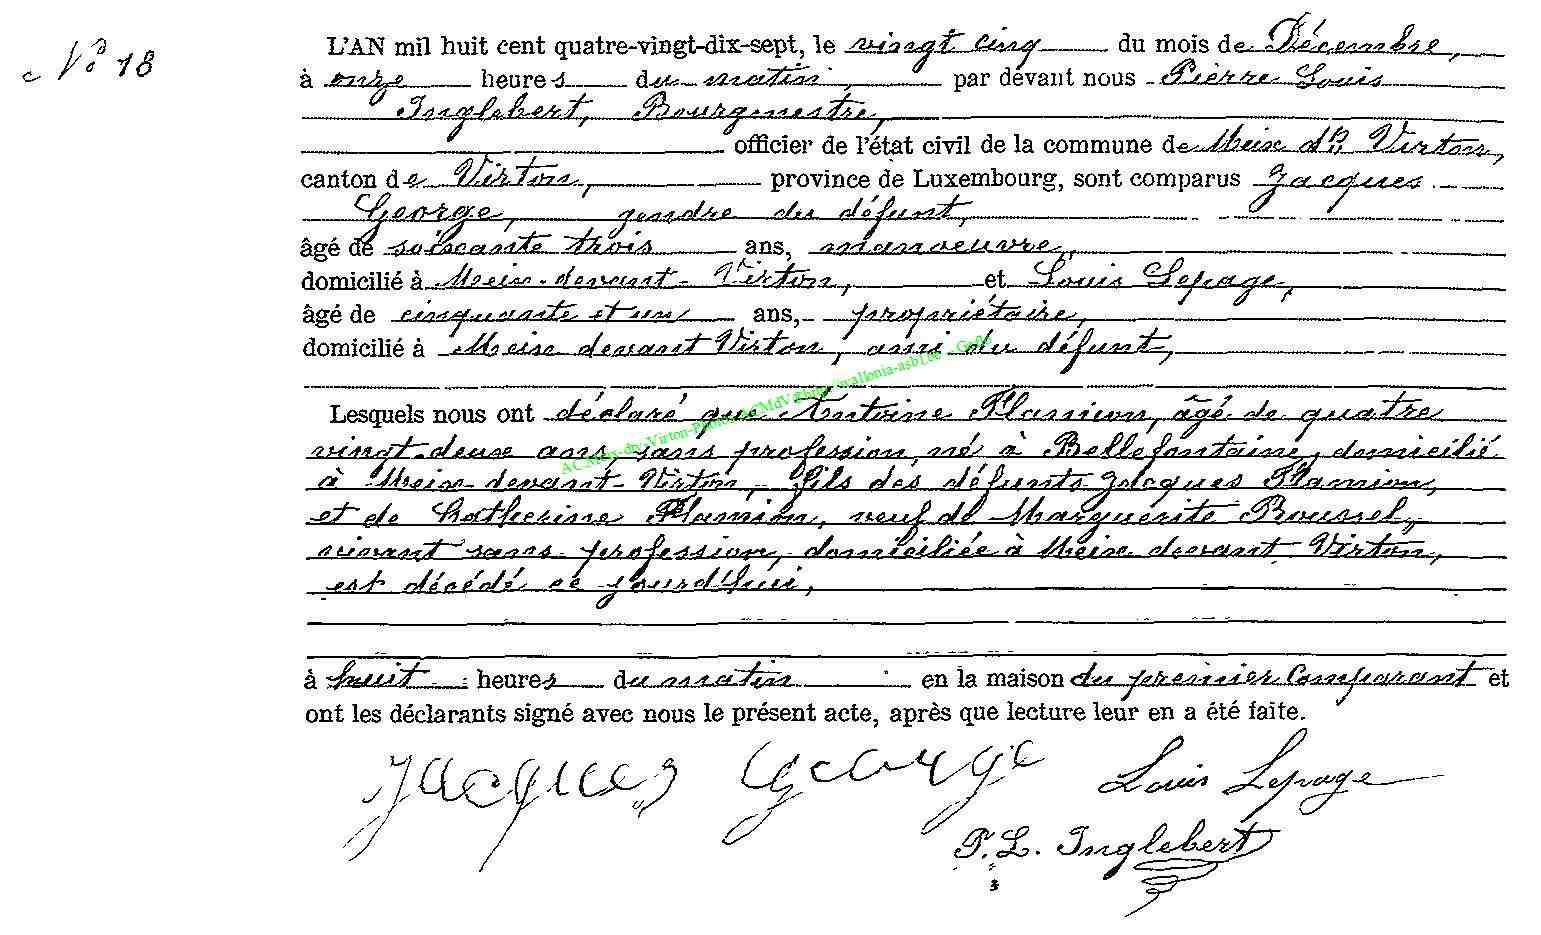 No 18
L'AN mil huit cent quatre-vingt-dix-sept, le vingt cinq du mois de Décembre,
à onze heures du matin, par devant nous Pierre Louis
Inglebert, Bourgmestre,
officier de l'état civil de la commune de Meix dt Virton,
canton de Virton, province de Luxembourg, sont comparus Jacques
George, gendre du défunt,
âgé de soixante trois ans, manoeuvre,
domicilié à Meix-devant-Virton, et Louis Lepage,
âgé de cinquante et un ans, propriétaire,
domicilié à Meix devant Virton, ami du défunt,
Lesquels nous ont déclaré que Antoine Flamion, âgé de quatre
vingt-deux ans, sans profession, né à Bellefontaine, domicilié
à Meix-devant-Virton, fils des défunts Jacques Flamion,
et de Catherine Flamion, veuf de Marguerite Roussel,
vivant sans profession, domiciliée à Meix devant Virton,
est décédé ce jourd'hui,
à huit heures du matin en la maison du premier comparant et
ont les déclarants signé avec nous le présent acte, après que lecture leur en a été faite.
Jacques George Louis Lepage
P. L. Inglebert